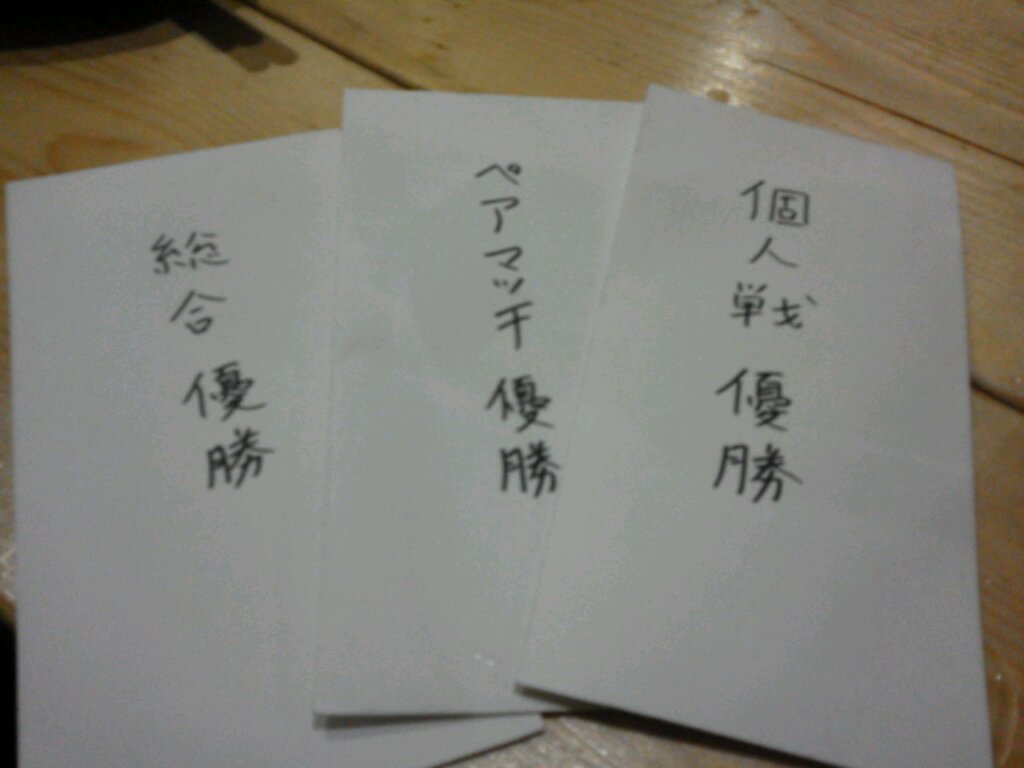 個人戦 優勝
ペアマッチ 優勝
総合 優勝